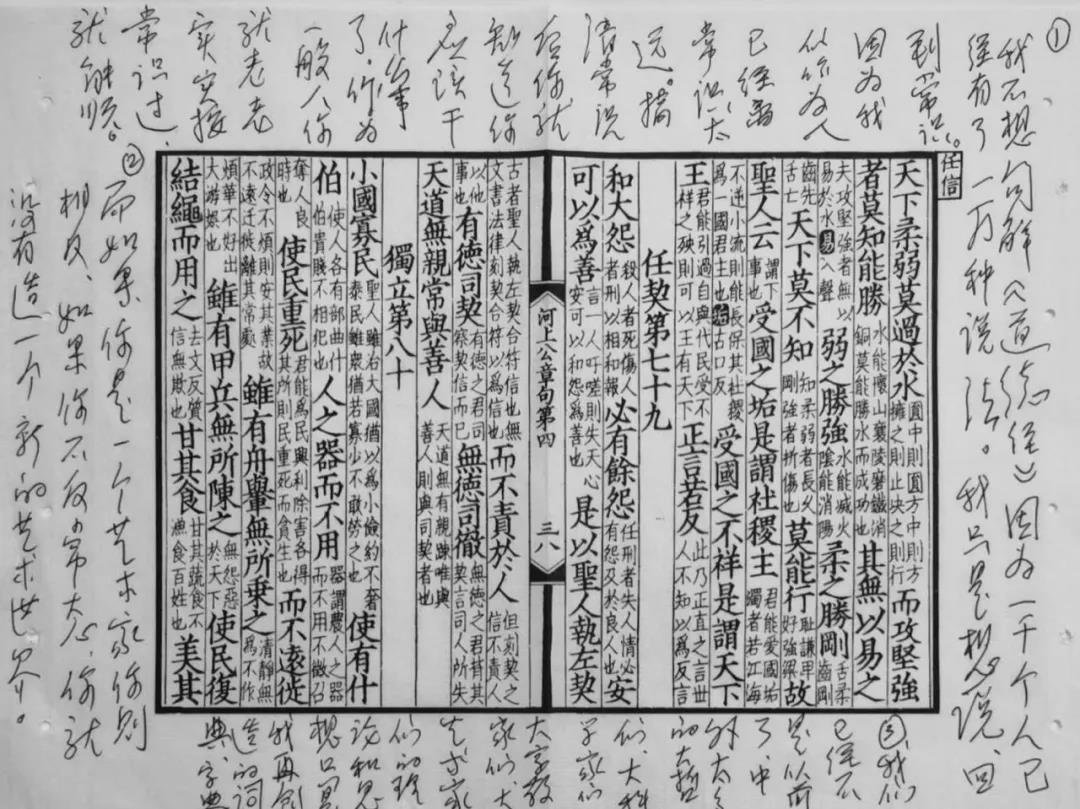 ①
我不想勾解《道德经》因为一千个人已
经有了一万种说法。我只是想说,回
到常识。
因为我
你为人
已经离
常识太
远。搞
清常识
后你就
知道你
应该干
什么事
了。你为
一般人你
就老老
实实按
常识过,
就能顺。
任信
天下柔弱莫過於水圓中則圓方中則方擁之則止決之則行而攻堅強
者莫知能勝水能懷山襄陵磨鐵消銅莫能勝水而成功也其無以易之
夫攻堅強者無以易於水易入聲弱之勝強水能滅火陰能消陽柔之勝剛舌柔齒剛
齒先舌亡天下莫不知知柔弱者長久剛強者折傷也莫能行恥謙卑好強梁故
聖人云謂下事也受國之垢是謂社稷主君能受國垢濁者若江海
不逆小流則能長保其社稷為一國君主也垢古口反受國之不祥是謂天下
王君能引過自與代民受不祥之殃則可以王有天下正言若反此乃正直之言世人不知以為反言
任契第七十九
和大怨殺人者死傷人者刑以相和報必有餘怨任刑者失人情必有怨及於良人也安
可以爲善言一人吁嗟則失天心安可以和怨爲善也是以聖人執左契
河上公章句第四 三八
古者聖人執左契合符信也無文書法律刻契合符以爲信也而不責於人但刻契之信不責人
以他事也有德司契有德之君司察契信而已無德司徹無德之君背其契言司人所失
天道無親常與善人天道無有親踈唯與善人則與司契者也
獨立第八十
小國寡民聖人雖治大國猶以爲小儉約不奢泰民雖衆猶若寡少不敢勞之也使有什
伯使人各有部曲什伯貴賤不相犯也人之器而不用器謂農人之器而不用不徵召
奪人良時也使民重死君能爲民興利除害各得其所則民重死而貪生也而不遠徙
政令不煩則安其業故不遠遷徙離其常處雖有舟轝無所乗之清靜無爲不作
煩華不好出大游娛也雖有甲兵無所陳之無怨惡於天下使民復
結繩而用之去文反質信無欺也甘其食甘其蔬食不漁食百姓也美其
②
而如果你是一个艺术家你则
相反、如果你不反常态,你就
没有造一个新的艺术世界。
③我们
已经不
是以前
了,中
外太多
的大哲
们、大科
学家们
大宗教
家们、大
艺术家
们的理
论和思
想只是
我再创
造的词
典、字典